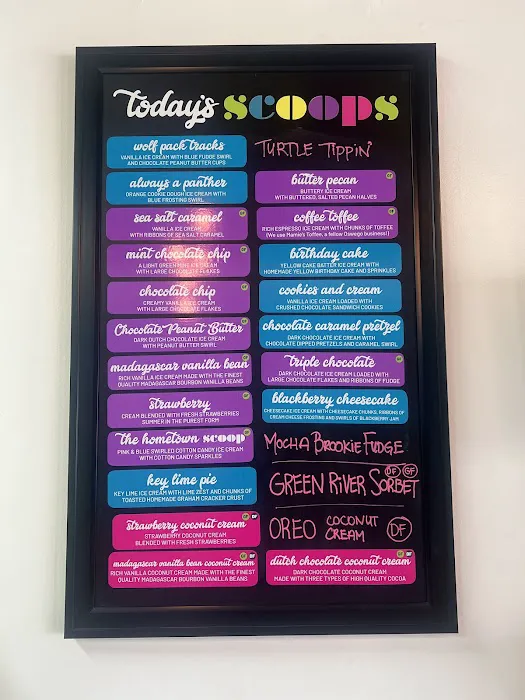 today's scoops
wolf pack tracks
VANILLA ICE CREAM WITH BLUE FUDGE SWIRL
AND CHOCOLATE PEANUT BUTTER CUPS
always a panther
ORANGE COOKIE DOUGH ICE CREAM WITH
BLUE FROSTING SWIRL
sea salt caramel
VANILLA ICE CREAM
WITH RIBBONS OF SEA SALT CARAMEL
mint chocolate chip
A LIGHT GREEN MINT ICE CREAM
WITH LARGE CHOCOLATE FLAKES
chocolate chip
CREAMY VANILLA ICE CREAM
WITH LARGE CHOCOLATE FLAKES
Chocolate Peanut Butter
DARK DUTCH CHOCOLATE ICE CREAM
WITH PEANUT BUTTER SWIRL
madagascar vanilla bean
RICH VANILLA ICE CREAM MADE WITH THE FINEST
QUALITY MADAGASCAR BOURBON VANILLA BEANS
strawberry
CREAM BLENDED WITH FRESH STRAWBERRIES
SUMMER IN THE PUREST FORM
the hometown scoop
PINK & BLUE SWIRLED COTTON CANDY ICE CREAM
WITH COTTON CANDY SPARKLES
key lime pie
KEY LIME ICE CREAM WITH LIME ZEST AND CHUNKS OF
TOASTED HOMEMADE GRAHAM CRACKER CRUST
strawberry coconut cream
STRAWBERRY COCONUT CREAM
BLENDED WITH FRESH STRAWBERRIES
madagascar vanilla bean coconut cream
RICH VANILLA COCONUT CREAM MADE WITH THE FINEST
QUALITY MADAGASCAR BOURBON VANILLA BEANS
TURTLE TIPPIN'
butter pecan
BUTTERY ICE CREAM
WITH BUTTERED, SALTED PECAN HALVES
coffee toffee
RICH ESPRESSO ICE CREAM WITH CHUNKS OF TOFFEE
(We use Mamie's Toffee, a fellow Oswego business!)
birthday cake
YELLOW CAKE BATTER ICE CREAM WITH
HOMEMADE YELLOW BIRTHDAY CAKE AND SPRINKLES
cookies and cream
VANILLA ICE CREAM LOADED WITH
CRUSHED CHOCOLATE SANDWICH COOKIES
chocolate caramel pretzel
DARK CHOCOLATE ICE CREAM WITH
CHOCOLATE DIPPED PRETZELS AND CARAMEL SWIRL
triple chocolate
DARK CHOCOLATE ICE CREAM LOADED WITH
LARGE CHOCOLATE FLAKES AND RIBBONS OF FUDGE
blackberry cheesecake
CHEESECAKE ICE CREAM WITH CHEESECAKE CHUNKS, RIBBONS OF
CREAM CHEESE FROSTING AND SWIRLS OF BLACKBERRY JAM
MOCHA BROOKIE FUDGE
GREEN RIVER SORBET DF GF
OREO COCONUT CREAM DF
dutch chocolate coconut cream
DARK CHOCOLATE COCONUT CREAM
MADE WITH THREE TYPES OF HIGH QUALITY COCOA